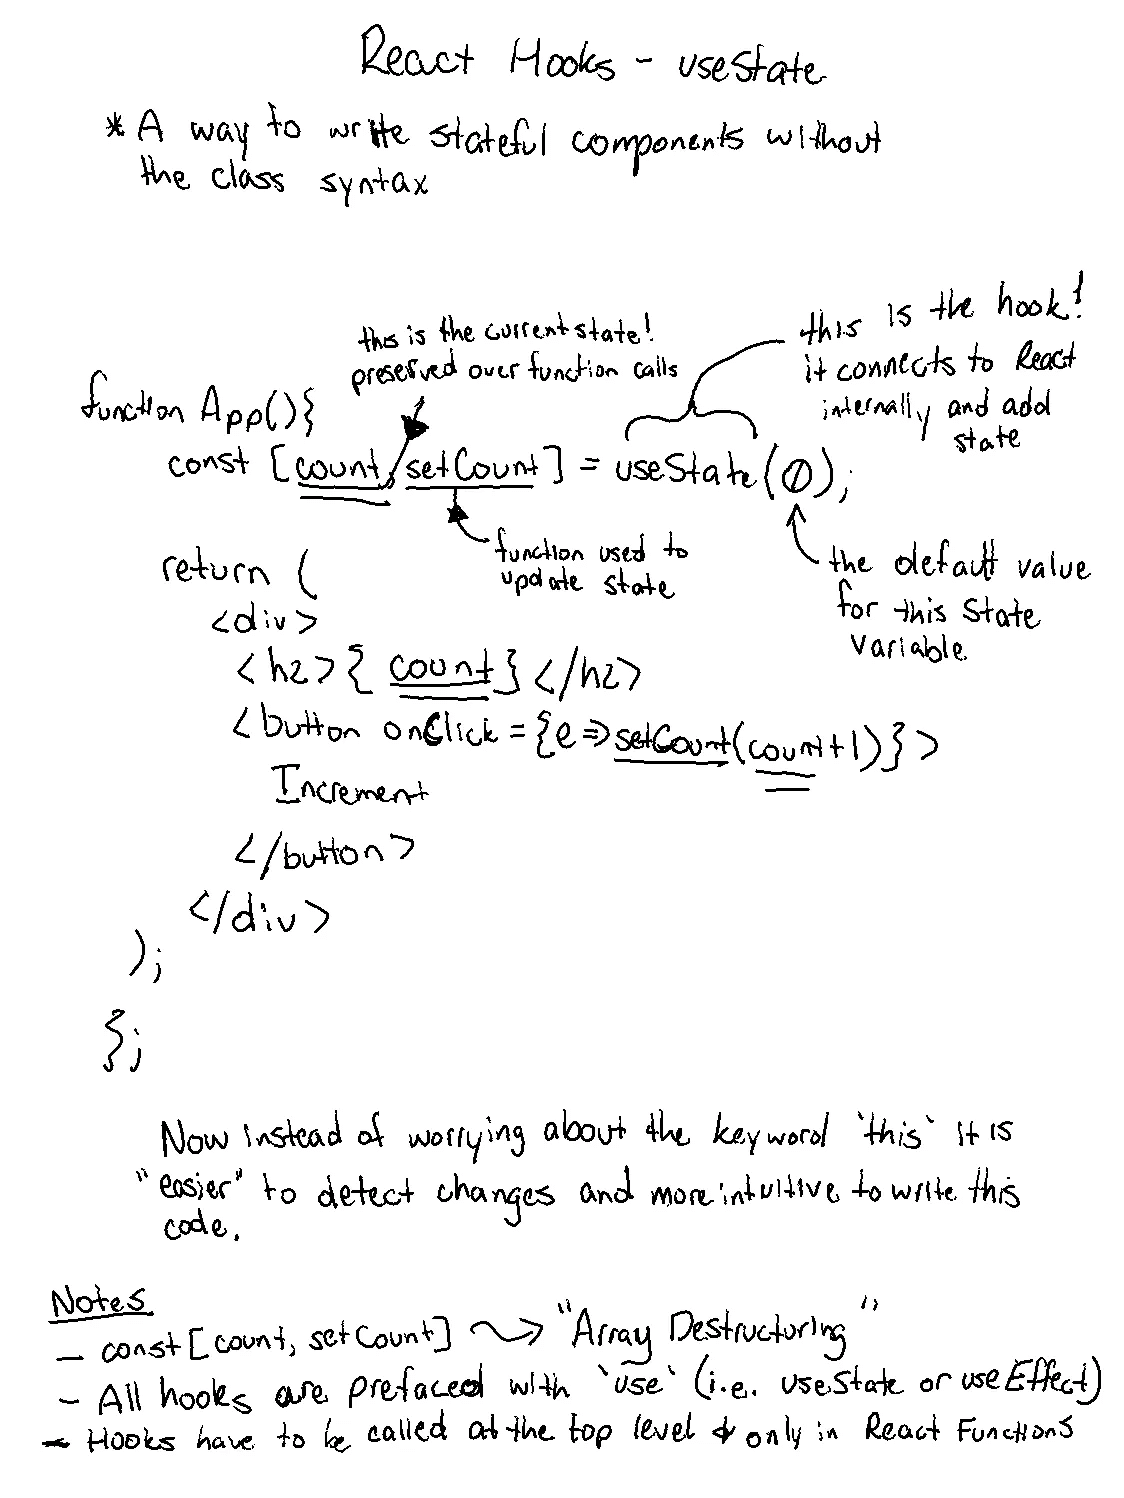 React Hooks - useState
* A way to write stateful components without
the class syntax
this is the current state!
preserved over function calls
this is the hook!
it connects to React
internally and add
state
function App(){
const [count, setCount] = useState(0);
function used to
update state
the default value
for this State
variable.
return (
<div>
<h2>{ count}</h2>
<button onClick={e=>setCount(count+1)}>
Increment
</button>
</div>
);
};
Now instead of worrying about the keyword `this` it is
"easier" to detect changes and more intuitive to write this
code.
Notes
- const[count, setCount] ~> "Array Destructuring"
- All hooks are prefaced with `use` (i.e. useState or useEffect)
- Hooks have to be called at the top level & only in React Functions